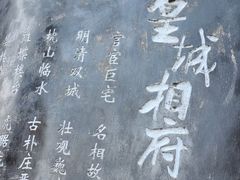 皇城相府
官宦巨宅 名相故
明清双城 壮观巍
枕山临水 古朴庄严